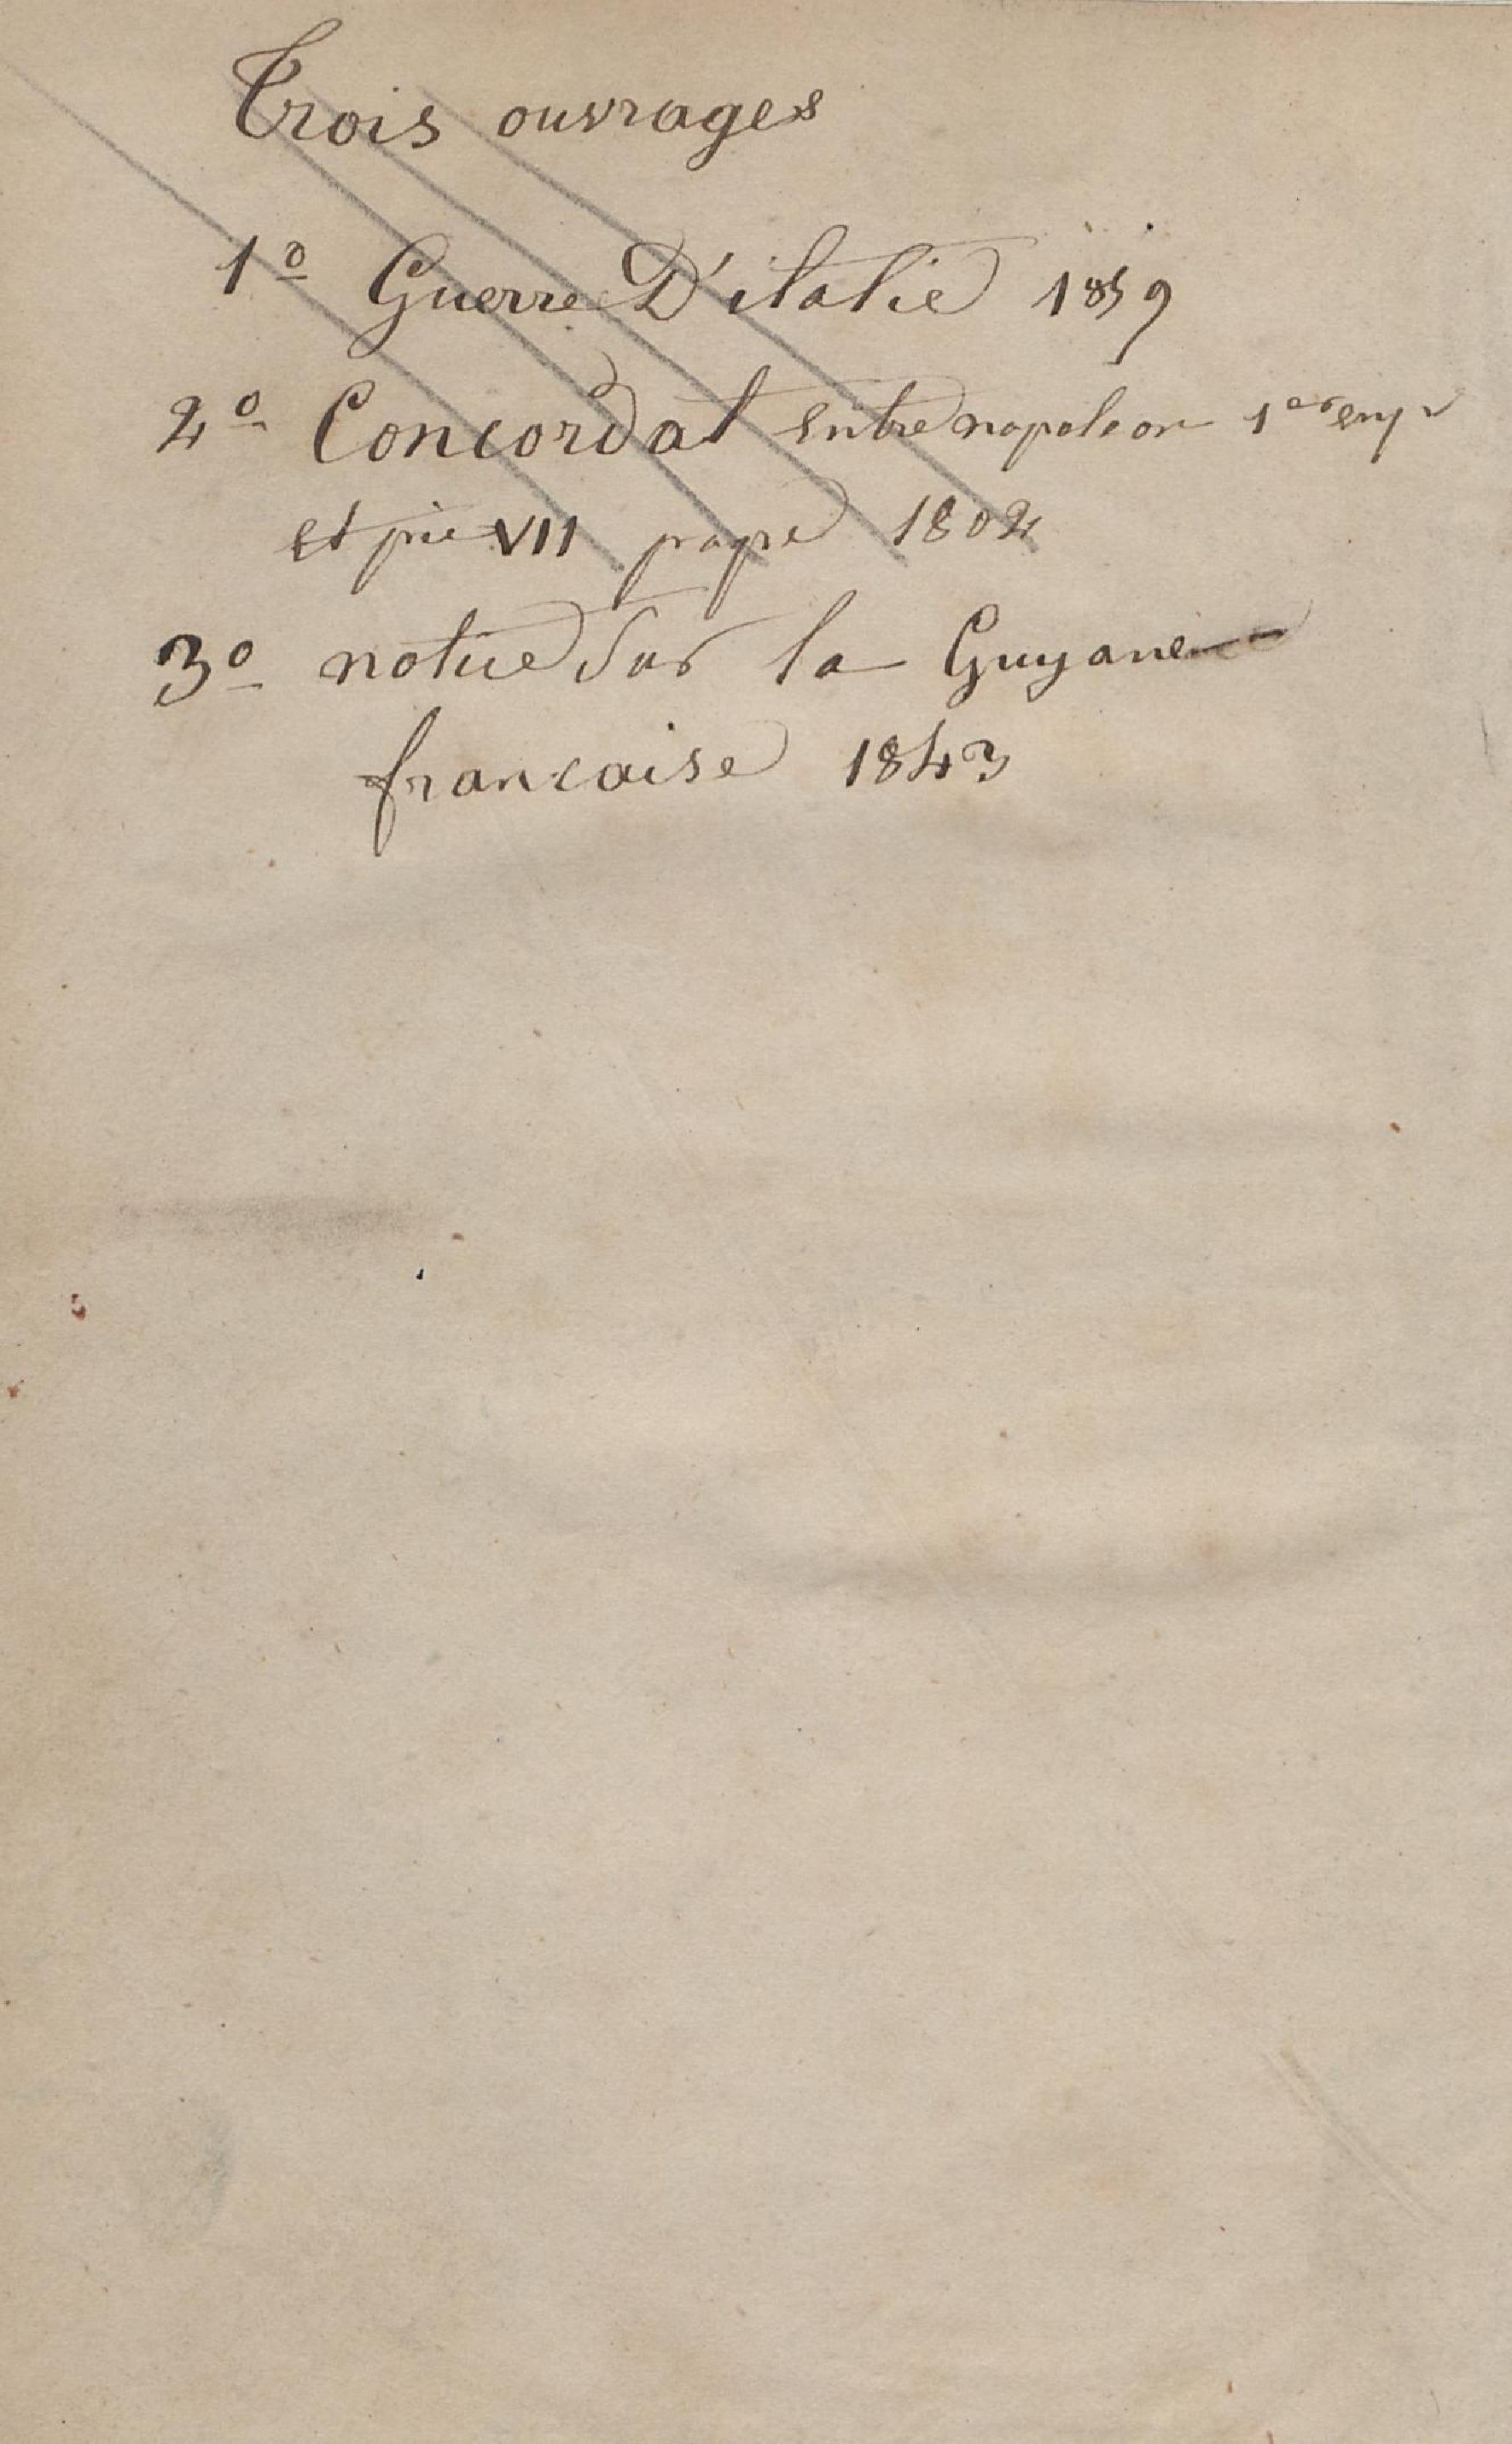 Trois ouvrages
1º Guerre D'italie 1859
2º Concordat entre napoleon 1er empr
et pie VII pape 1802
3º notice Sur la Guyane
francaise 1843